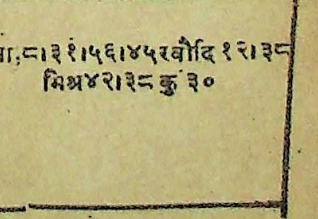 ा.८।३१।५६।४५रवौदि १२।३८
मिश्र४२।३८ कु ३०